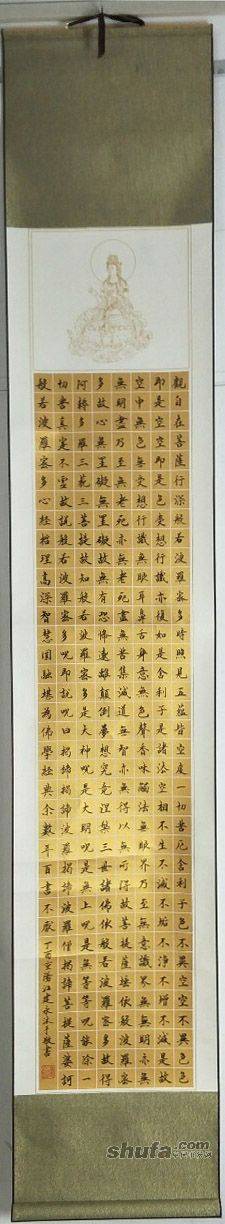 觀自在菩薩行深般若波羅蜜多時照見五蘊皆空度一切苦厄舍利子色不異空空不異色色
即是空空即是色受想行識亦復如是舍利子是諸法空相不生不滅不垢不淨不增不減是故
空中無色無受想行識無眼耳鼻舌身意無色聲香味觸法無眼界乃至無意識界無無明亦無
無明盡乃至無老死亦無老死盡無苦集滅道無智亦無得以無所得故菩提薩埵依般波羅蜜
多故心無罣礙無罣礙故無有恐怖遠離顛倒夢想究竟涅槃三世諸佛依般若波羅蜜多故得
阿耨多羅三藐三菩提故知般若波羅蜜多是大神咒是大明咒是無上咒是無等等咒能除一
切苦真實不虛故說般若波羅蜜多咒即說咒曰揭諦揭諦波羅揭諦波羅僧揭諦菩提薩婆訶
般若波羅蜜多心經哲理高深智慧圓融堪為佛學經典余數年百書不厭丁酉江建永沐手敬書
shufa.com